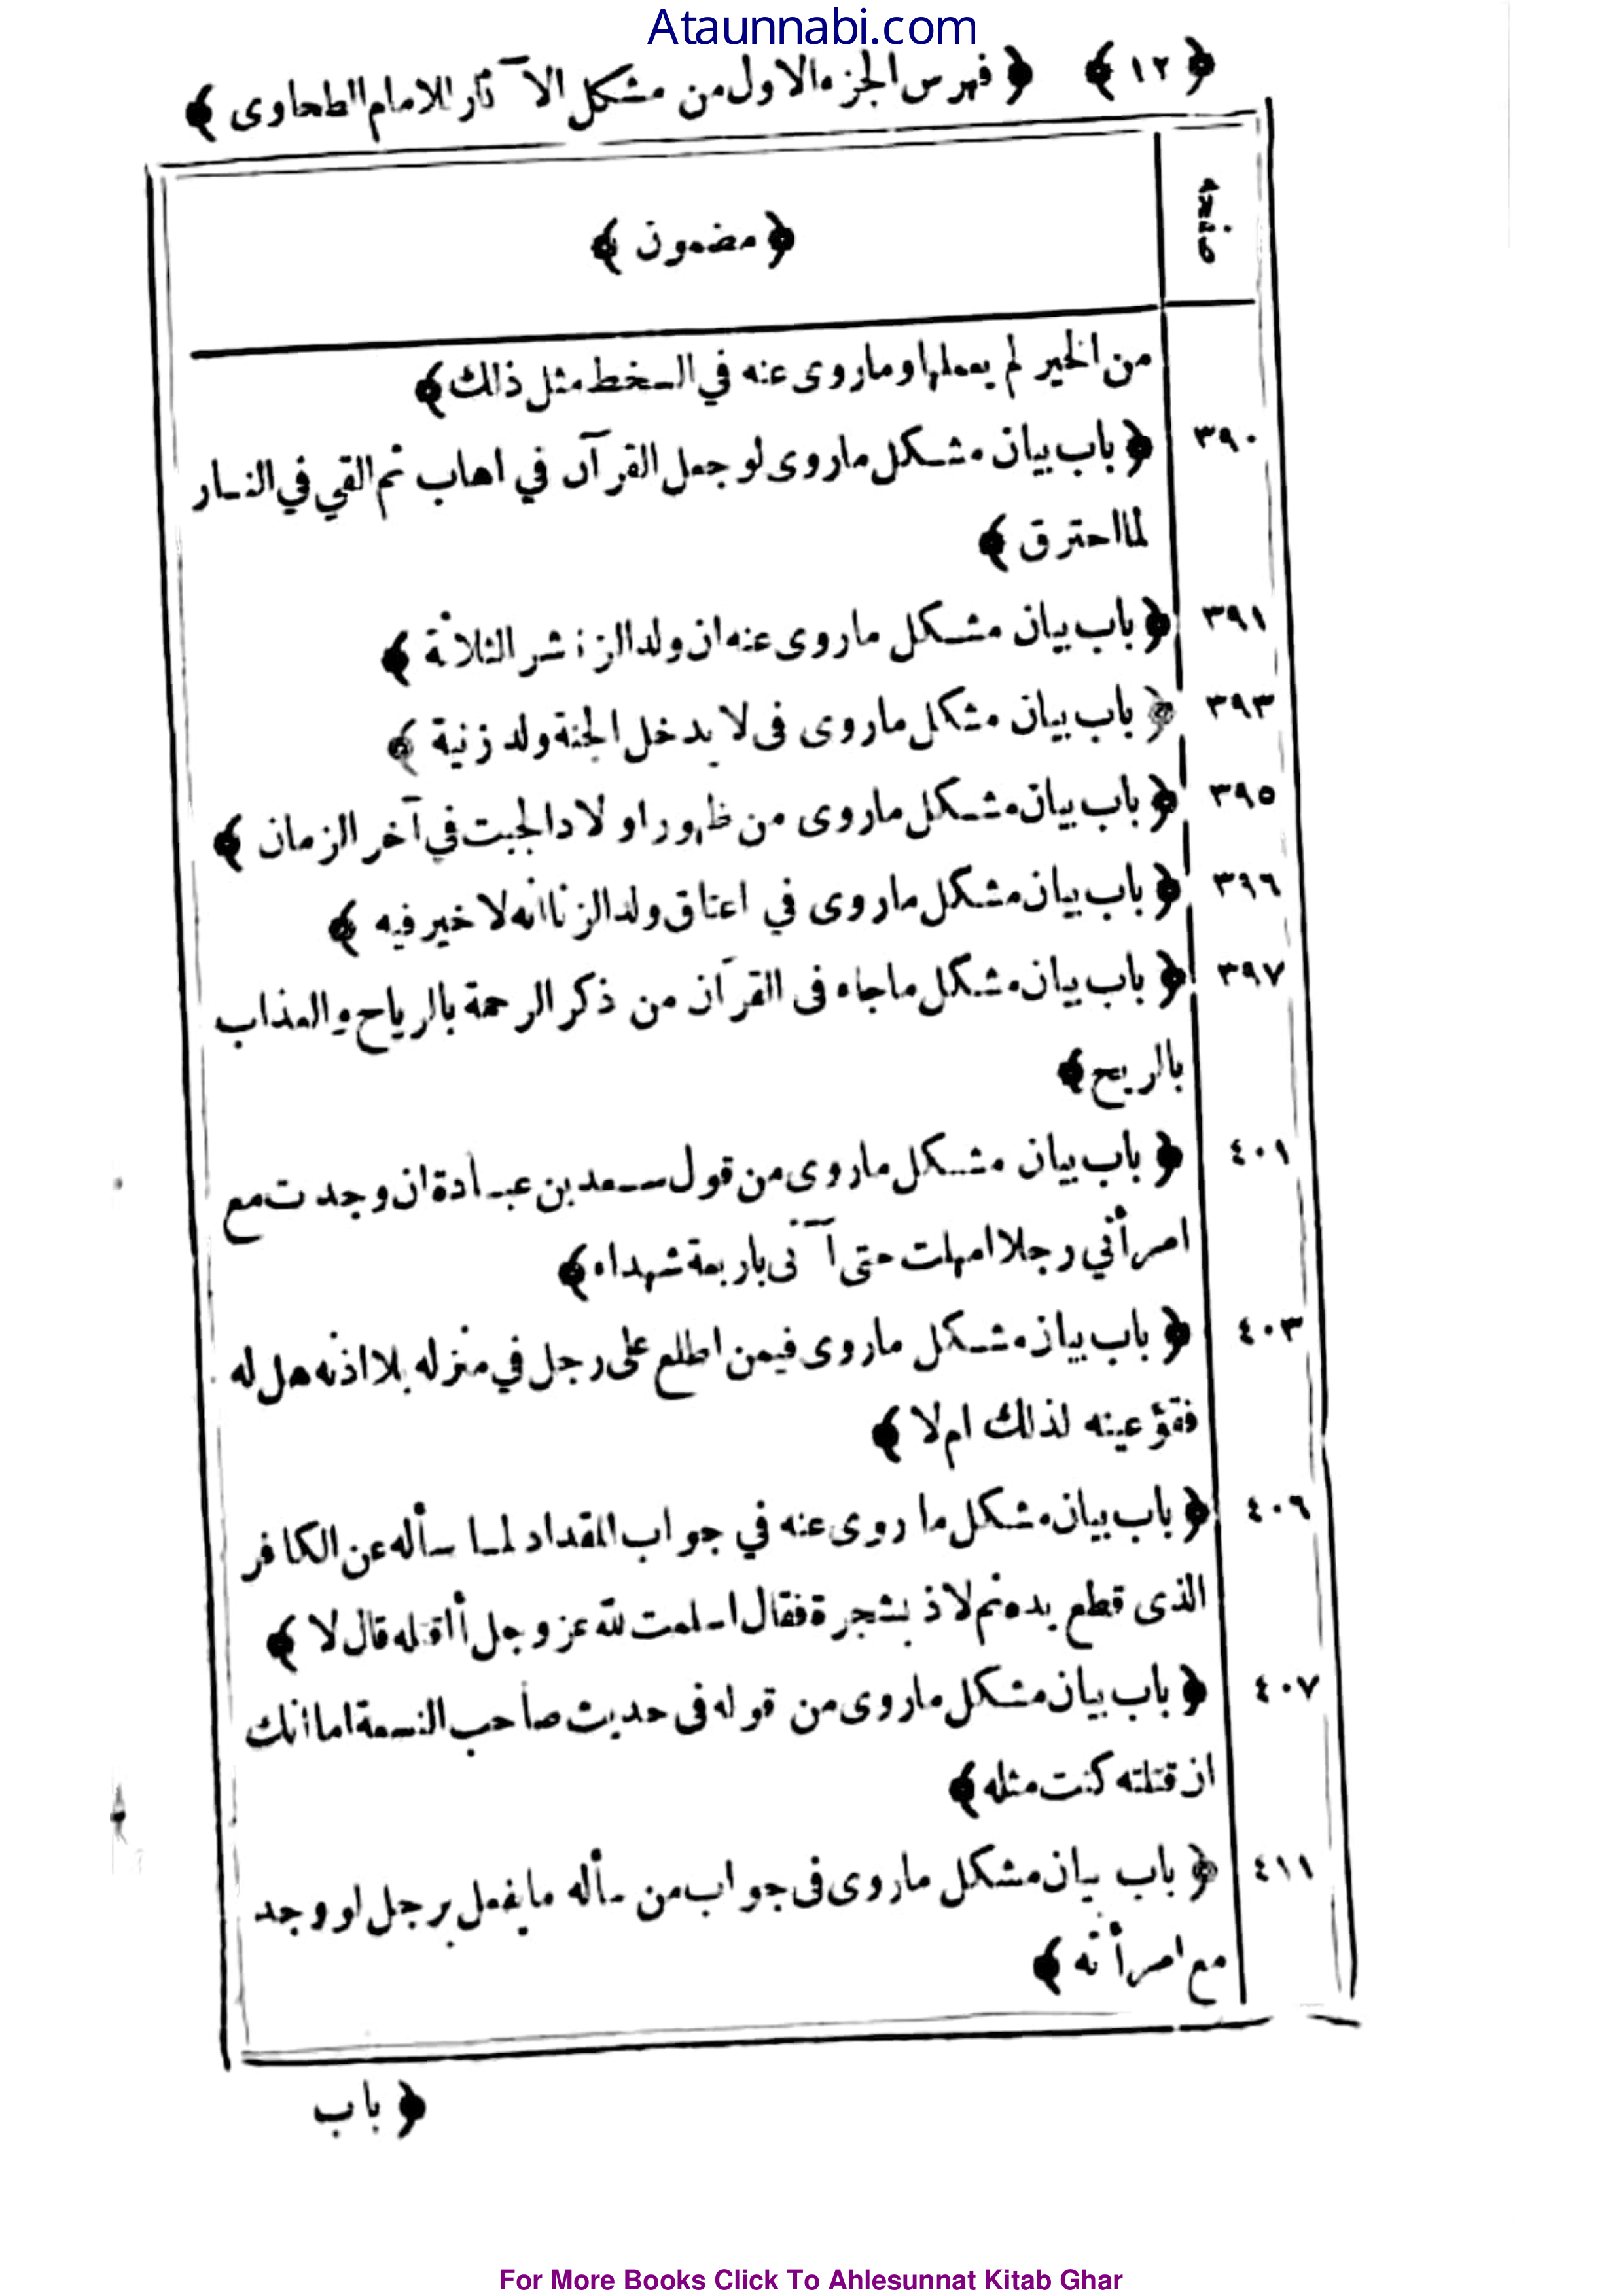 Ataunnabi.com
﴿ ١٢ ﴾ ﴿ فهرس الجزء الاول من مشكل الآثار للامام الطحاوى ﴾
صفحه
﴿ مضمون ﴾
من الخير لم يعملها وما روى عنه في السخط مثل ذلك ﴾
٣٩٠ ﴿ باب بيان مشكل ماروى لو جعل القرآن في اهاب ثم القي في النار
لما احترق ﴾
٣٩١ ﴿ باب بيان مشكل ماروى عنه ان ولد الزنا شر الثلاثة ﴾
٣٩٣ ﴿ باب بيان مشكل ماروى فى لا يدخل الجنة ولد زنية ﴾
٣٩٥ ﴿ باب بيان مشكل ماروى من ظهور اولاد الجبت في آخر الزمان ﴾
٣٩٦ ﴿ باب بيان مشكل ماروى في اعتاق ولد الزنا انه لا خير فيه ﴾
٣٩٧ ﴿ باب بيان مشكل ماجاء فى القرآن من ذكر الرحمة بالرياح والعذاب
بالريح ﴾
٤٠١ ﴿ باب بيان مشكل ماروى من قول سعد بن عبادة ان وجدت مع
امرأتي رجلا امهلت حتى آتى باربعة شهداء ﴾
٤٠٣ ﴿ باب بيان مشكل ماروى فيمن اطلع على رجل في منزله بلا اذنه هل له
فقؤ عينه لذلك ام لا ﴾
٤٠٦ ﴿ باب بيان مشكل ما روى عنه في جواب المقداد لما سأله عن الكافر
الذى قطع يده ثم لاذ بشجرة فقال اسلمت لله عز وجل أاقتله قال لا ﴾
٤٠٧ ﴿ باب بيان مشكل ماروى من قوله فى حديث صاحب النسعة اما انك
ان قتلته كنت مثله ﴾
٤١١ ﴿ باب بيان مشكل ماروى فى جواب من سأله ما يفعل برجل لو وجد
مع امرأته ﴾
﴿ باب
For More Books Click To Ahlesunnat Kitab Ghar